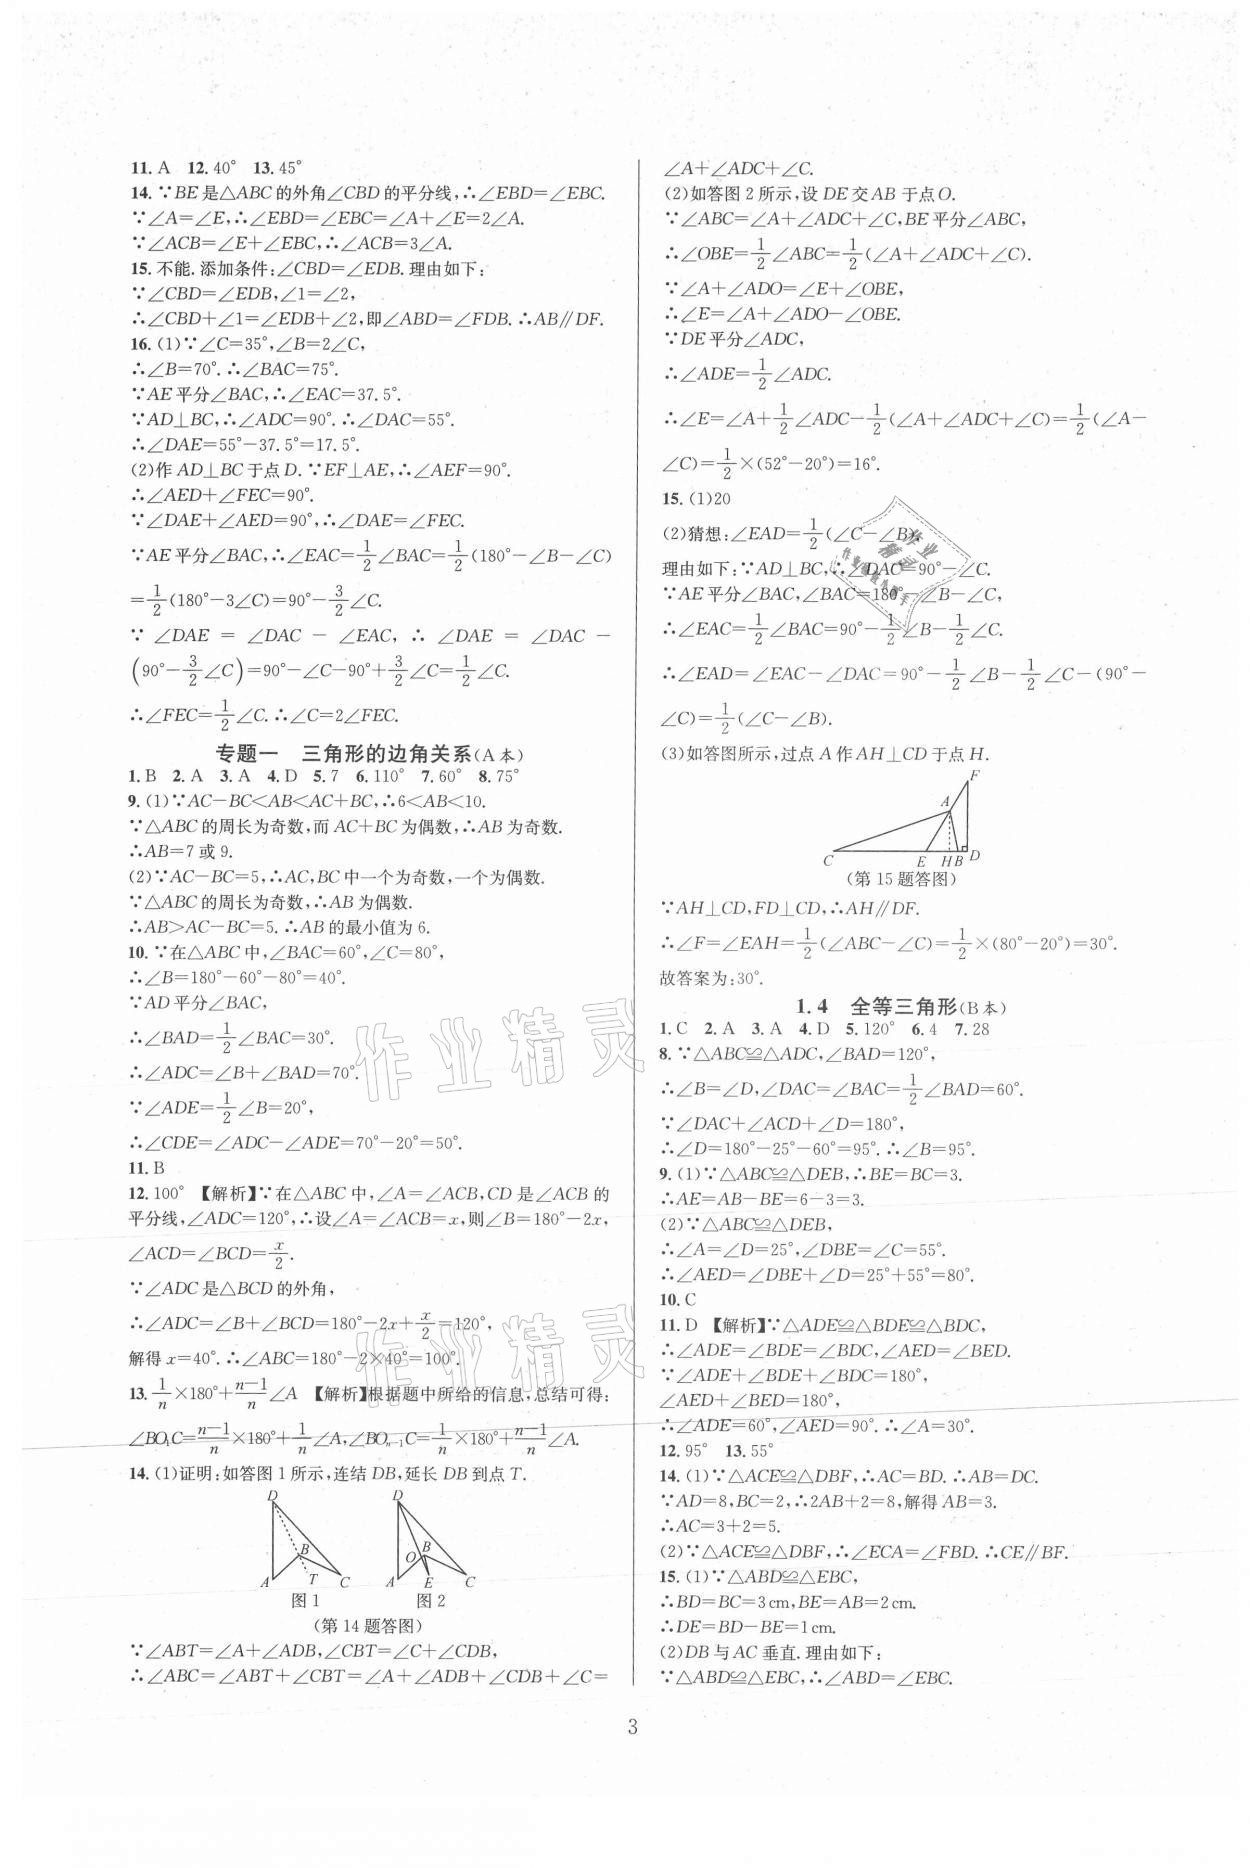 11. A　12. 40°　13. 45°
14. ∵BE是△ABC的外角∠CBD的平分线,∴∠EBD=∠EBC.
∵∠A=∠E,∴∠EBD=∠EBC=∠A+∠E=2∠A.
∵∠ACB=∠E+∠EBC,∴∠ACB=3∠A.
15. 不能.添加条件:∠CBD=∠EDB.理由如下:
∵∠CBD=∠EDB,∠1=∠2,
∴∠CBD+∠1=∠EDB+∠2,即∠ABD=∠FDB.∴AB∥DF.
16. (1)∵∠C=35°,∠B=2∠C,
∴∠B=70°.∴∠BAC=75°.
∵AE平分∠BAC,∴∠EAC=37.5°.
∵AD⊥BC,∴∠ADC=90°.∴∠DAC=55°.
∴∠DAE=55°-37.5°=17.5°.
(2)作AD⊥BC于点D.∵EF⊥AE,∴∠AEF=90°.
∴∠AED+∠FEC=90°.
∵∠DAE+∠AED=90°,∴∠DAE=∠FEC.
∵AE平分∠BAC,∴∠EAC=1/2∠BAC=1/2(180°-∠B-∠C)
=1/2(180°-3∠C)=90°-3/2∠C.
∵ ∠DAE = ∠DAC - ∠EAC, ∴ ∠DAE = ∠DAC -
(90°-3/2∠C)=90°-∠C-90°+3/2∠C=1/2∠C.
∴∠FEC=1/2∠C.∴∠C=2∠FEC.
专题一　三角形的边角关系(A本)
1. B　2. A　3. A　4. D　5. 7　6. 110°　7. 60°　8. 75°
9. (1)∵AC-BC<AB<AC+BC,∴6<AB<10.
∵△ABC的周长为奇数,而AC+BC为偶数,∴AB为奇数.
∴AB=7或9.
(2)∵AC-BC=5,∴AC,BC中一个为奇数,一个为偶数.
∵△ABC的周长为奇数,∴AB为偶数.
∴AB>AC-BC=5.∴AB的最小值为6.
10. ∵在△ABC中,∠BAC=60°,∠C=80°,
∴∠B=180°-60°-80°=40°.
∵AD平分∠BAC,
∴∠BAD=1/2∠BAC=30°.
∴∠ADC=∠B+∠BAD=70°.
∵∠ADE=1/2∠B=20°,
∴∠CDE=∠ADC-∠ADE=70°-20°=50°.
11. B
12. 100°　【解析】∵在△ABC中,∠A=∠ACB,CD是∠ACB的
平分线,∠ADC=120°,∴设∠A=∠ACB=x,则∠B=180°-2x,
∠ACD=∠BCD=x/2.
∵∠ADC是△BCD的外角,
∴∠ADC=∠B+∠BCD=180°-2x+x/2=120°,
解得x=40°.∴∠ABC=180°-2×40°=100°.
13. 1/n×180°+(n-1)/n∠A　【解析】根据题中所给的信息,总结可得:
∠BO₁C=(n-1)/n×180°+1/n∠A,∠BOₙ₋₁C=1/n×180°+(n-1)/n∠A.
14. (1)证明:如答图1所示,连结DB,延长DB到点T.
D
B
A
T
C
图1
D
O
B
A
E
C
图2
(第14题答图)
∵∠ABT=∠A+∠ADB,∠CBT=∠C+∠CDB,
∴∠ABC=∠ABT+∠CBT=∠A+∠ADB+∠CDB+∠C=
∠A+∠ADC+∠C.
(2)如答图2所示,设DE交AB于点O.
∵∠ABC=∠A+∠ADC+∠C,BE平分∠ABC,
∴∠OBE=1/2∠ABC=1/2(∠A+∠ADC+∠C).
∵∠A+∠ADO=∠E+∠OBE,
∴∠E=∠A+∠ADO-∠OBE.
∵DE平分∠ADC,
∴∠ADE=1/2∠ADC.
∴∠E=∠A+1/2∠ADC-1/2(∠A+∠ADC+∠C)=1/2(∠A-
∠C)=1/2×(52°-20°)=16°.
15. (1)20
(2)猜想:∠EAD=1/2(∠C-∠B).
理由如下:∵AD⊥BC,∴∠DAC=90°-∠C.
∵AE平分∠BAC,∠BAC=180°-∠B-∠C,
∴∠EAC=1/2∠BAC=90°-1/2∠B-1/2∠C.
∴∠EAD=∠EAC-∠DAC=90°-1/2∠B-1/2∠C-(90°-
∠C)=1/2(∠C-∠B).
(3)如答图所示,过点A作AH⊥CD于点H.
F
A
C
E
H
B
D
(第15题答图)
∵AH⊥CD,FD⊥CD,∴AH∥DF.
∴∠F=∠EAH=1/2(∠ABC-∠C)=1/2×(80°-20°)=30°.
故答案为:30°.
1.4　全等三角形(B本)
1. C　2. A　3. A　4. D　5. 120°　6. 4　7. 28
8. ∵△ABC≌△ADC,∠BAD=120°,
∴∠B=∠D,∠DAC=∠BAC=1/2∠BAD=60°.
∵∠DAC+∠ACD+∠D=180°,
∴∠D=180°-25°-60°=95°.∴∠B=95°.
9. (1)∵△ABC≌△DEB,∴BE=BC=3.
∴AE=AB-BE=6-3=3.
(2)∵△ABC≌△DEB,
∴∠A=∠D=25°,∠DBE=∠C=55°.
∴∠AED=∠DBE+∠D=25°+55°=80°.
10. C
11. D　【解析】∵△ADE≌△BDE≌△BDC,
∴∠ADE=∠BDE=∠BDC,∠AED=∠BED.
∵∠ADE+∠BDE+∠BDC=180°,
∠AED+∠BED=180°,
∴∠ADE=60°,∠AED=90°.∴∠A=30°.
12. 95°　13. 55°
14. (1)∵△ACE≌△DBF,∴AC=BD.∴AB=DC.
∵AD=8,BC=2,∴2AB+2=8,解得AB=3.
∴AC=3+2=5.
(2)∵△ACE≌△DBF,∴∠ECA=∠FBD.∴CE∥BF.
15. (1)∵△ABD≌△EBC,
∴BD=BC=3 cm,BE=AB=2 cm.
∴DE=BD-BE=1 cm.
(2)DB与AC垂直.理由如下:
∵△ABD≌△EBC,∴∠ABD=∠EBC.
3
作业精灵
作业精灵